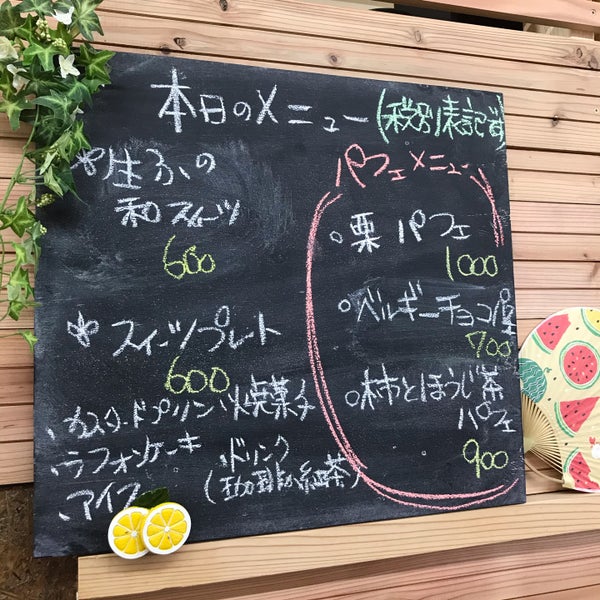 本日のメニュー (税別表記です)
生ふの
和スイーツ
600
スイーツプレート
600
、カスタードプリン 、焼菓子
、ラフォンケーキ
、アイス
、ドリンク
(珈琲か紅茶)
パフェメニュー
。栗パフェ
1000
。ベルギーチョコ
700
。柿とほうじ茶
パフェ
900